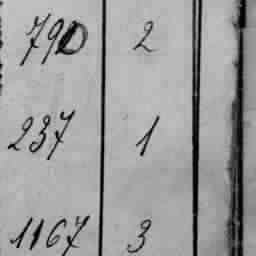 790 2
237 1
1167 3